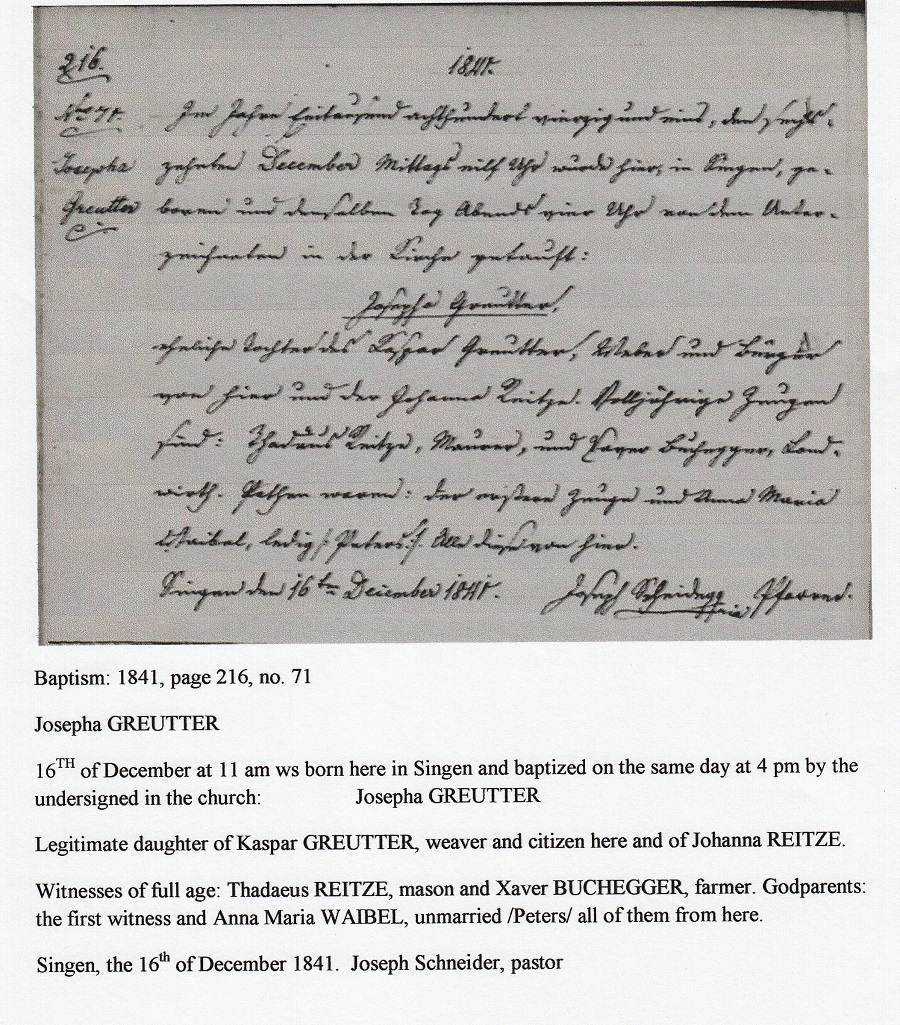 216.
1841.
No 71.
Im Jahre Eintausend achthundert vierzig und eins, den sechs-
Josepha
zehnten December Mittags eilf Uhr wurde hier, in Singen, ge-
Greutter
boren und denselben Tag Abends vier Uhr von dem Unter-
zeichneten in der Kirche getauft:
Josepha Greutter,
eheliche Tochter des Kaspar Greutter, Weber und Bürger
von hier und der Johanna Reitze. Volljährige Zeugen
sind: Thadäus Reitze, Maurer, und Xaver Buchegger, Land-
wirth. Pathen waren: der erstere Zeuge und Anna Maria
Waibel, ledig /: Peters :/ Alle diese von hier.
Singen den 16ten December 1841. Joseph Pfarrer.
Baptism: 1841, page 216, no. 71
Josepha GREUTTER
16TH of December at 11 am ws born here in Singen and baptized on the same day at 4 pm by the
undersigned in the church: Josepha GREUTTER
Legitimate daughter of Kaspar GREUTTER, weaver and citizen here and of Johanna REITZE.
Witnesses of full age: Thadaeus REITZE, mason and Xaver BUCHEGGER, farmer. Godparents:
the first witness and Anna Maria WAIBEL, unmarried /Peters/ all of them from here.
Singen, the 16th of December 1841. Joseph Schneider, pastor